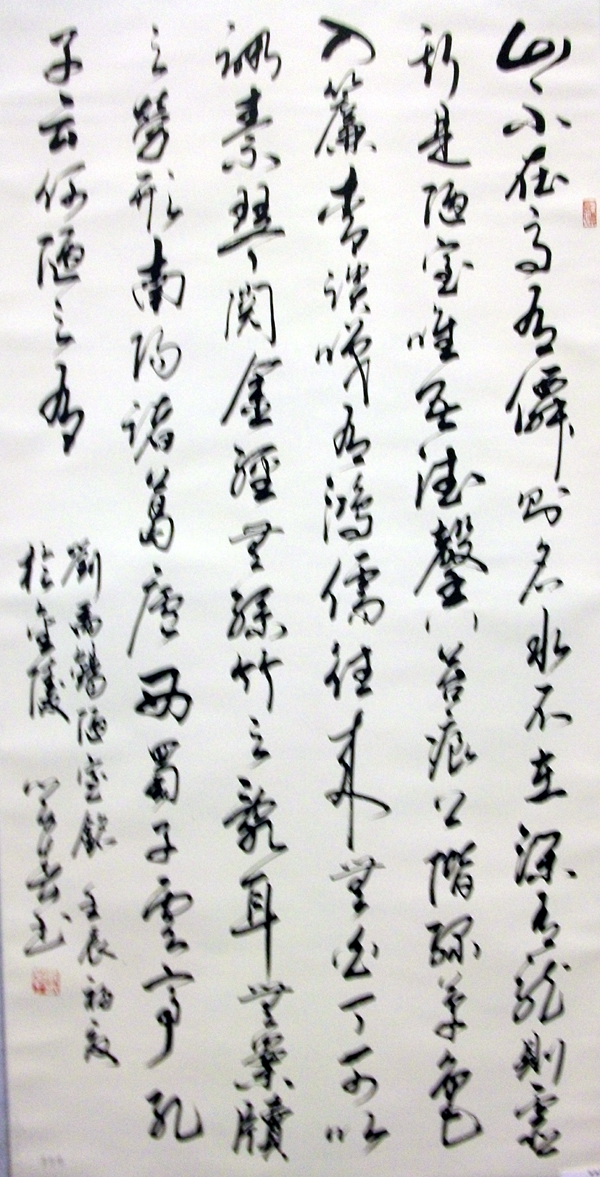 山不在高有僊則名水不在深有龍則靈
斯是陋室唯吾德馨苔痕上階綠草色
入簾青談咲有鴻儒往來無白丁可以
調素琴閱金經無絲竹之亂耳無案牘
之勞形南陽諸葛廬西蜀子雲亭孔
子云何陋之有
劉禹錫陋室銘 壬辰初夏
於金陵 書